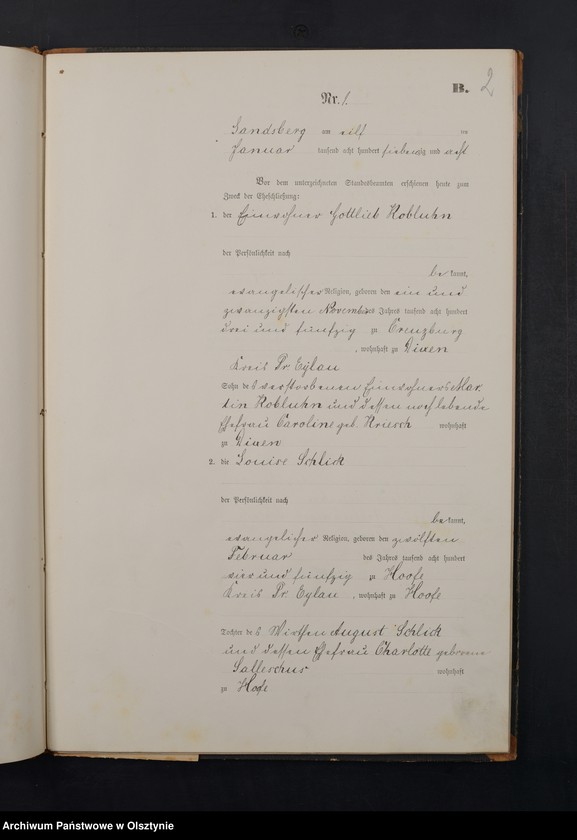 B. 2
Nr. 1.
Landsberg am eilf ten
Januar tausend acht hundert siebenzig und acht
Vor dem unterzeichneten Standesbeamten erschienen heute zum
Zweck der Eheschließung:
1. der Einwohner Gottlieb Kobluhn
der Persönlichkeit nach
be kannt,
evangelischer Religion, geboren den ein und
zwanzigsten November des Jahres tausend acht hundert
drei und fünfzig zu Creuzburg
, wohnhaft zu Dixen
Kreis Pr. Eylau
Sohn des verstorbenen Einwohners Mar-
tin Kobluhn und dessen noch lebende
Ehefrau Caroline geb. Kriesch wohnhaft
zu Dixen
2. die Louise Schlick
der Persönlichkeit nach
be kannt,
evangelischer Religion, geboren den zwölften
Februar des Jahres tausend acht hundert
vier und fünfzig zu Hoofe
Kreis Pr. Eylau , wohnhaft zu Hoofe
Tochter des Wirthen August Schlick
und dessen Ehefrau Charlotte geboren
Salleschus wohnhaft
zu Hoofe
Archiwum Państwowe w Olsztynie